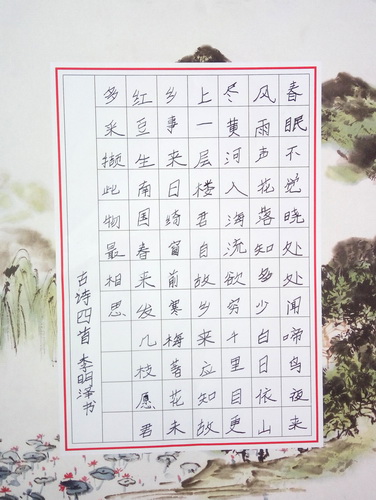 春眠不觉晓处处闻啼鸟夜来
风雨声花落知多少白日依山
尽黄河入海流欲穷千里目更
上一层楼君自故乡来应知故
乡事来日绮窗前寒梅著花未
红豆生南国春来发几枝愿君
多采撷此物最相思
古诗四首 李明泽书